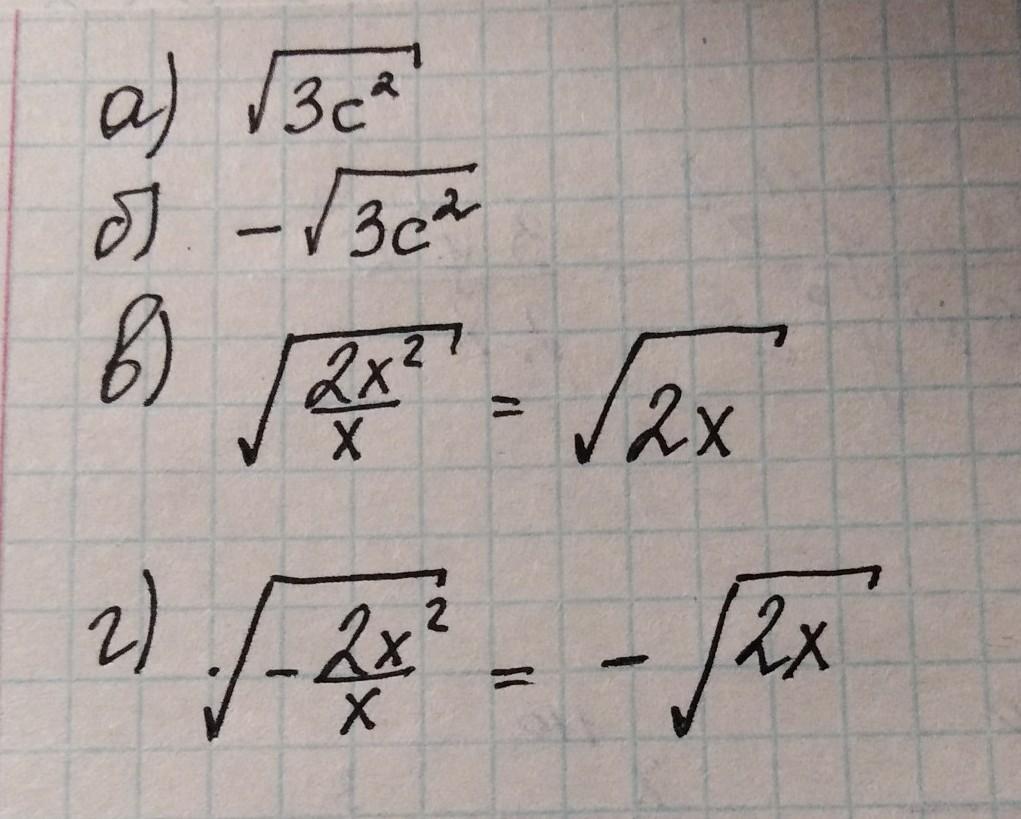 а) √3c²
б) -√3c²
в) √(2x²/x) = √2x
г) √(-2x²/x) = -√2x